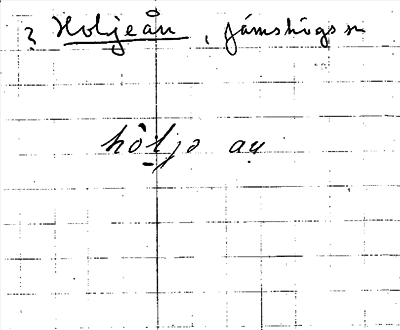 ? Holjeån, Jämshögs sn
hòl̠jo au̠